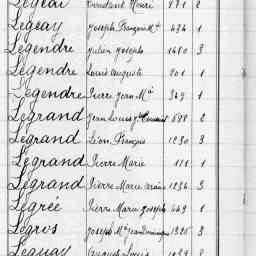 Legeai Constant Henri 971 2
Legeay Joseph François Mie 434 1
Legendre Julien Joseph 1480 3
Legendre Louis Auguste 201 1
Legendre Pierre Jean Mie 349 1
Legrand Jean Louis 698 2
Legrand Léon François 1230 3
Legrand Pierre Marie 111 1
Legrand Pierre Marie 1234 3
Legrée Pierre Marie Joseph 449 1
Legros Joseph Mie Jean Dominique 1325 3
Leguay Louis